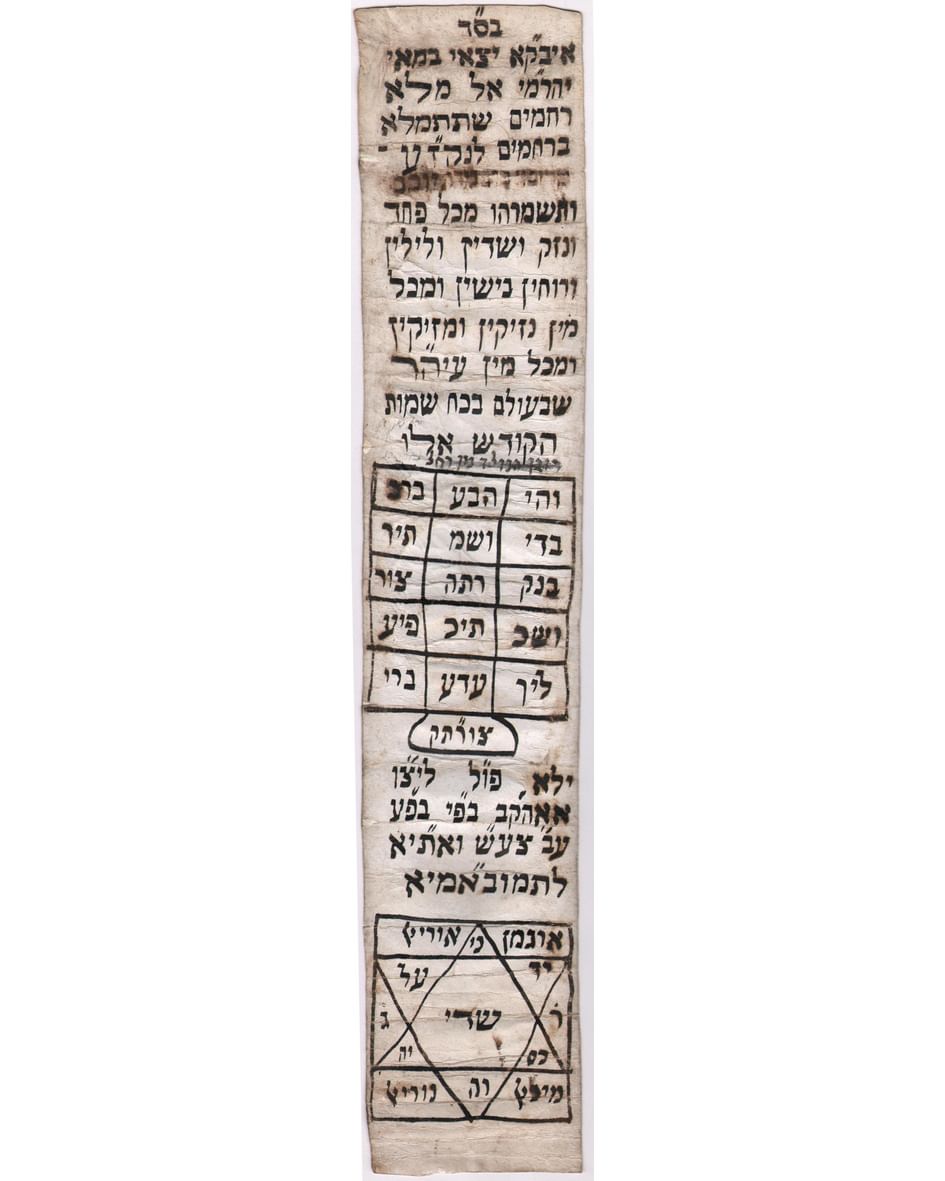 בס״ד
איבק״א יצאי במאי
יהרמ״י אל מלא
רחמים שתתמלא
ברחמים לנקדע
ותשמרהו מכל פחד
ונזק ושדין ולילין
ורוחין בישין ומכל
מין נזיקין ומזיקין
ומכל מין עיה״ר
שבעולם בכח שמות
הקודש אלו
והי הבע
בדי ושמ תיר
בנק רתה צור
ושכ תיכ פיע
ליך עדע ברי
צורתק
ילא פו״ל ליצו
אאהקב בפ״י בפ״ע
ע״ב צעש ואתיא
לתמובאמיא
אוגמן כי אוריץ
יד על
ר שדי ג
כס יה
וה נוריץ